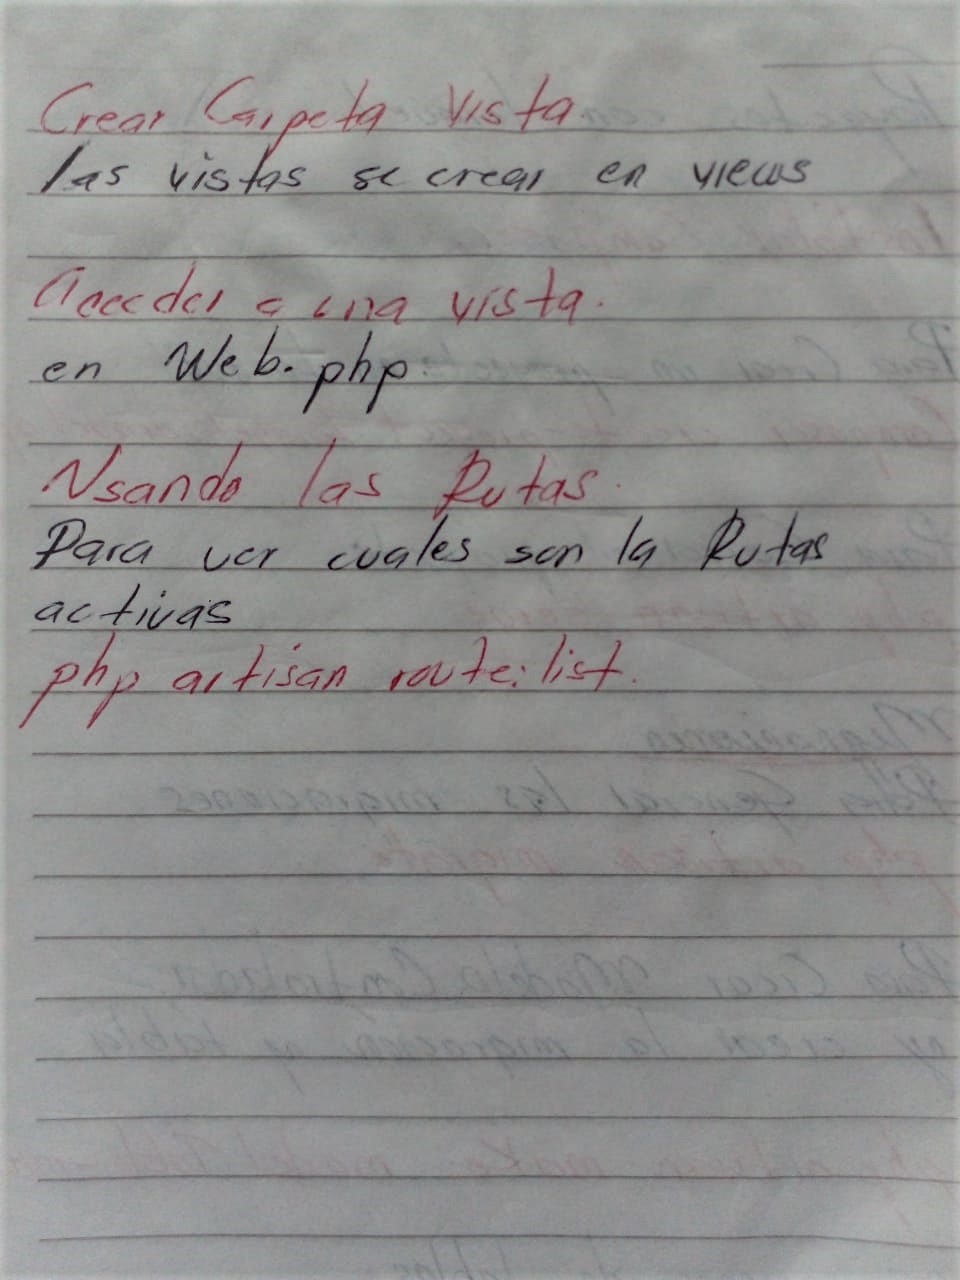 Crear Carpeta Vista
las vistas se crear en views
Acceder a una vista.
en Web.php.
Usando las Rutas.
Para ver cuales son la Rutas
activas
php artisan route:list.